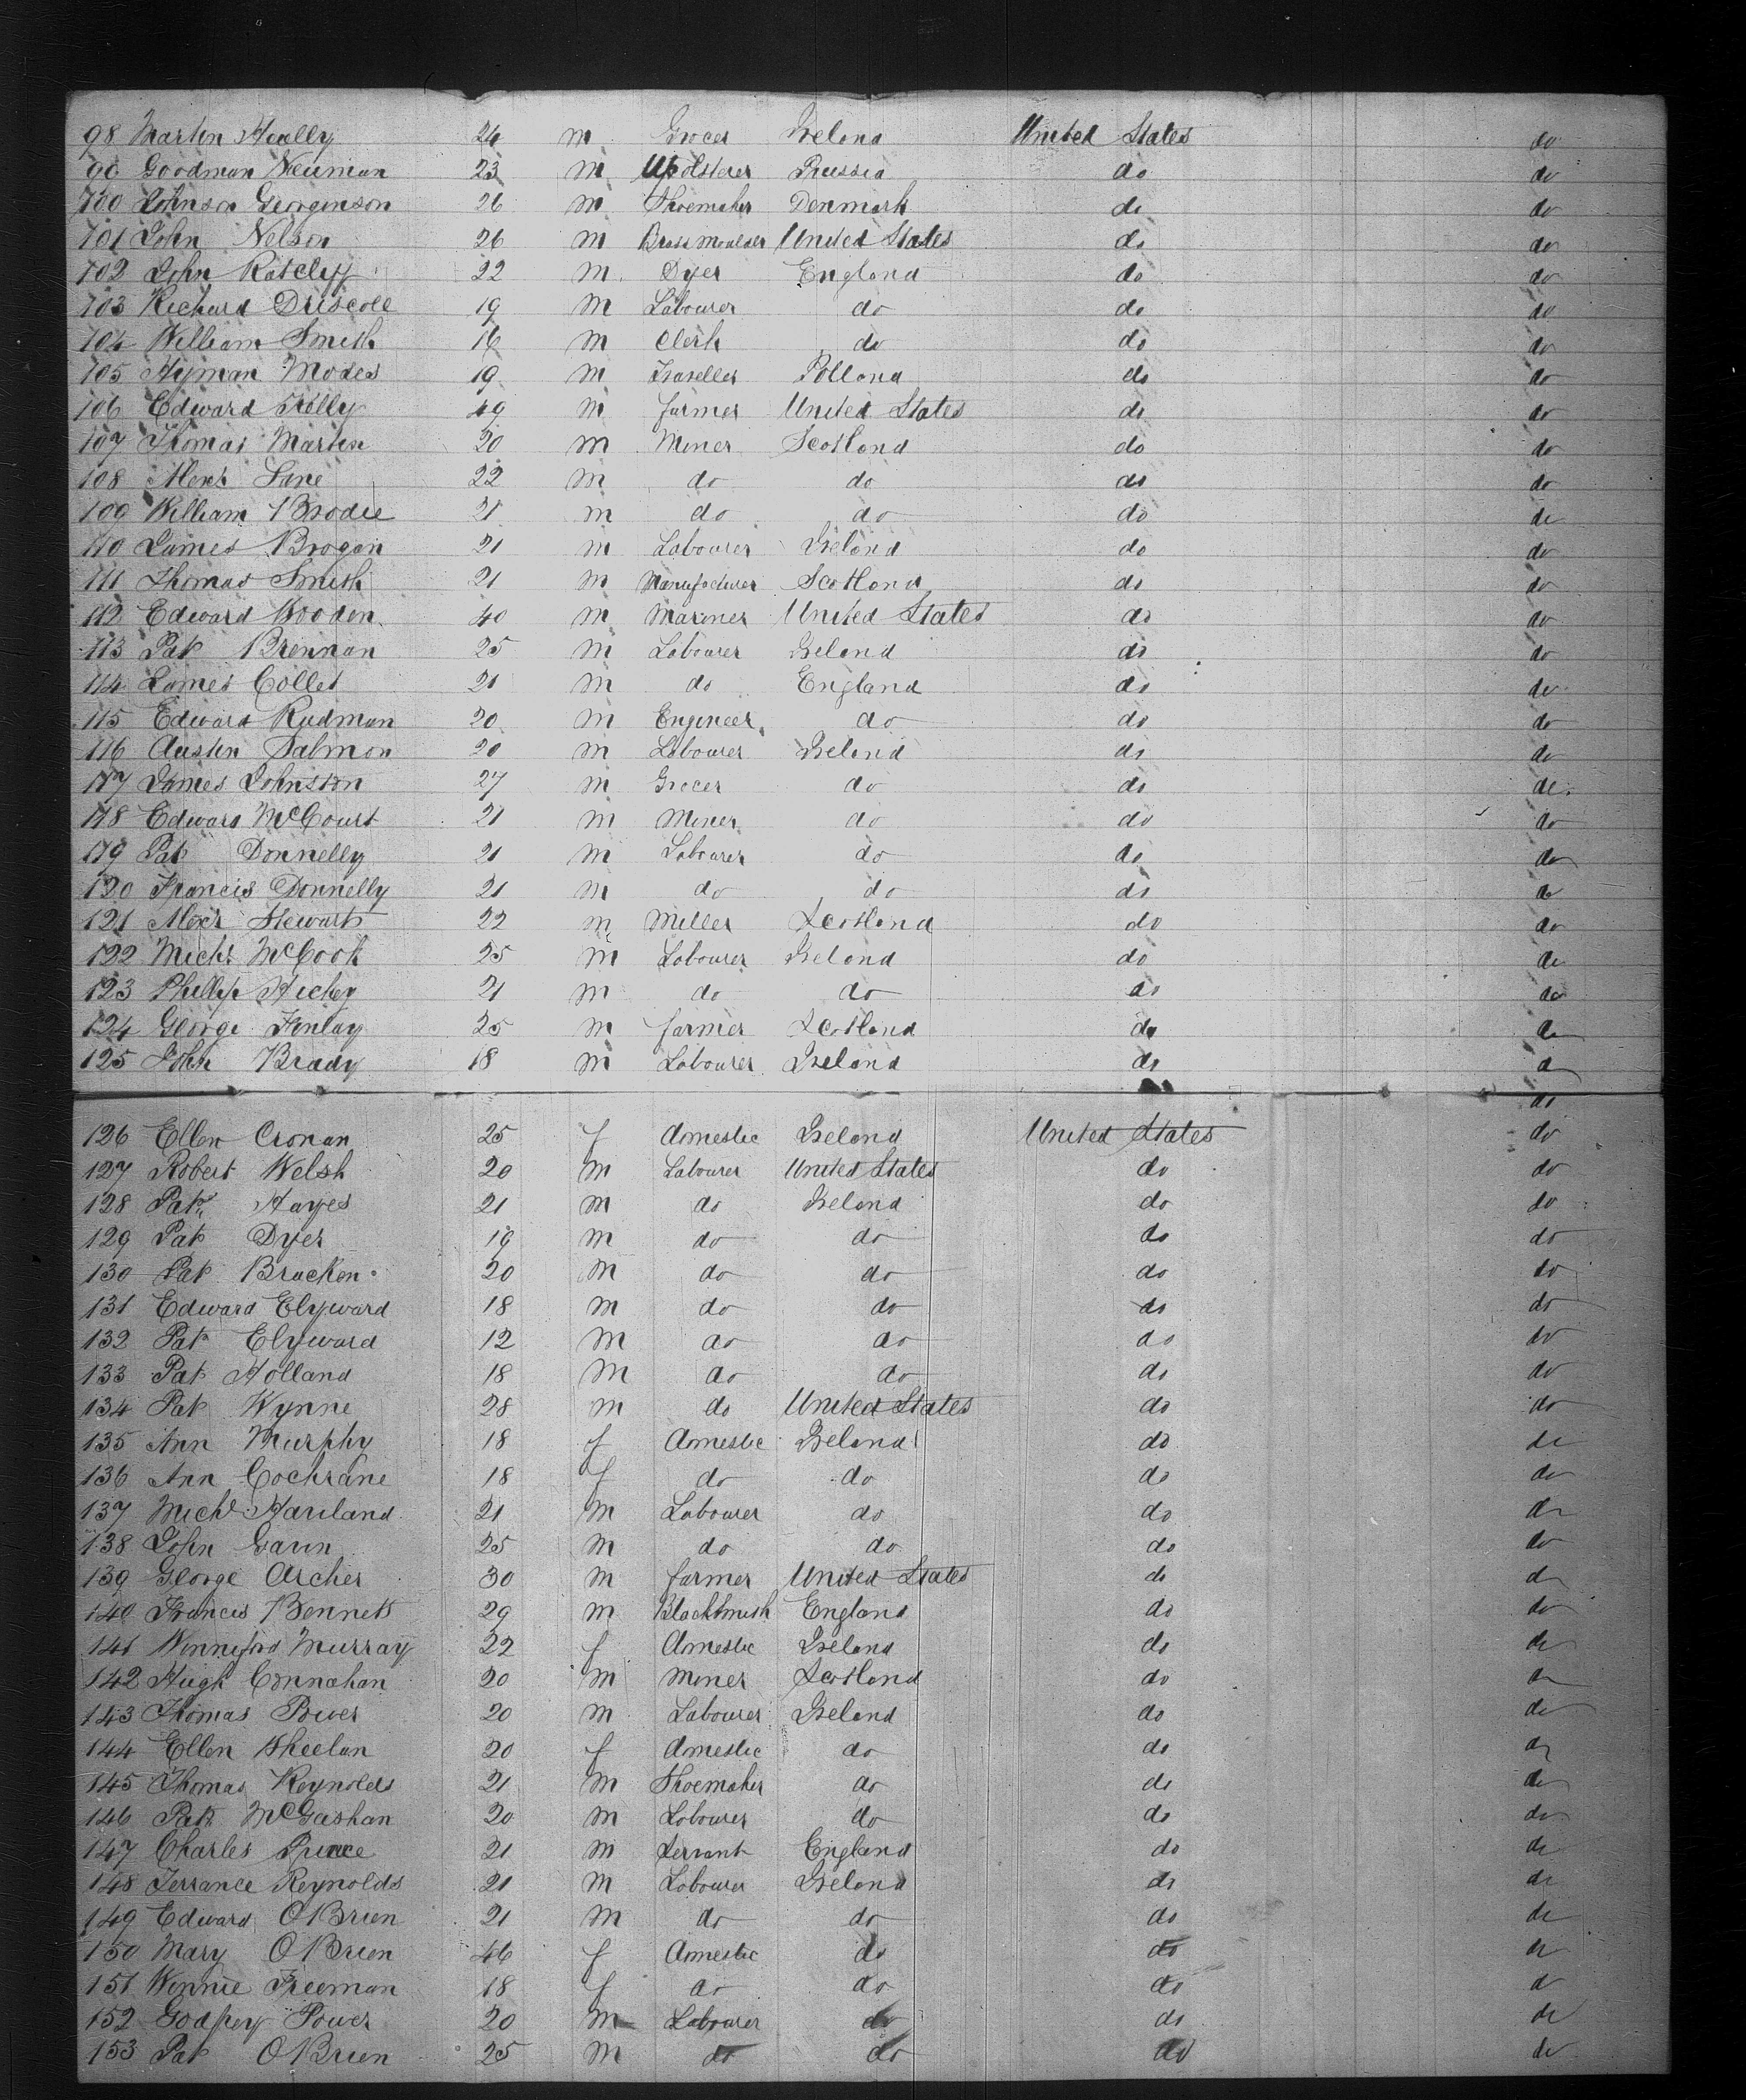 98 Martin Heally 24 m Grocer Ireland United States do
99 Goodman Neuman 23 m Upolsterer Russia do do
100 Johnson Georginson 26 m Shoemaker Denmark do do
101 John Nelson 26 m Brass Moulder United States do do
102 John Ratclyf 22 m Dyer England do do
103 Richard Driscole 19 m Labourer do do do
104 William Smith 16 m Clerk do do do
105 Hyman Moses 19 m Traveller Polland do do
106 Edward Kelly 49 m farmer United States do do
107 Thomas Martin 20 m Miner Scotland do do
108 Alexr Lane 22 m do do do do
109 William Brodie 21 m do do do do
110 James Brogan 21 m Labourer Ireland do do
111 Thomas Smith 21 m Manufacturer Scotland do do
112 Edward Wooden 40 m Mariner United States do do
113 Pat Brennan 25 m Labourer Ireland do do
114 James Collet 21 m do England do do
115 Edward Rudman 20 m Engineer do do do
116 Austin Salmon 20 m Labourer Ireland do do
117 James Johnston 27 m Grocer do do do
118 Edward McCourt 21 m Miner do do do
119 Pat Donnelly 21 m Labourer do do do
120 Francis Donnelly 21 m do do do do
121 Alexr Stewart 22 m Miller Scotland do do
122 Michl McCook 25 m Labourer Ireland do do
123 Phillip Hickey 21 m do do do do
124 George Finlay 25 m farmer Scotland do do
125 John Brady 18 m Labourer Ireland do do
do
126 Ellen Cronan 25 f domestic Ireland United States do
127 Robert Welsh 20 m Labourer United States do do
128 Patk Hayes 21 m do Ireland do do
129 Pat Dyer 19 m do do do do
130 Pat Bracken 20 m do do do do
131 Edward Elyward 18 m do do do do
132 Pat Elyward 12 m do do do do
133 Pat Holland 18 m do do do do
134 Pat Wynne 28 m do United States do do
135 Ann Murphy 18 f domestic Ireland do do
136 Ann Cochrane 18 f do do do do
137 Michl Hariland 21 m Labourer do do do
138 John Garin 25 m do do do do
139 George Archer 30 m farmer United States do do
140 Francis Bennett 29 m Blacksmith England do do
141 Winnifird Murray 22 f domestic Ireland do do
142 Hugh Connahan 20 m Miner Scotland do do
143 Thomas Power 20 m Labourer Ireland do do
144 Ellen Wheelan 20 f domestic do do do
145 Thomas Reynolds 21 m Shoemaker do do do
146 Patk McGashan 20 m Labourer do do do
147 Charles Prince 21 m Servant England do do
148 Terrance Reynolds 21 m Labourer Ireland do do
149 Edward OBrien 21 m do do do do
150 Mary OBrien 46 f domestic do do do
151 Winnie Freeman 18 f do do do do
152 Godfrey Power 20 m Labourer do do do
153 Pat OBrien 25 m do do do do